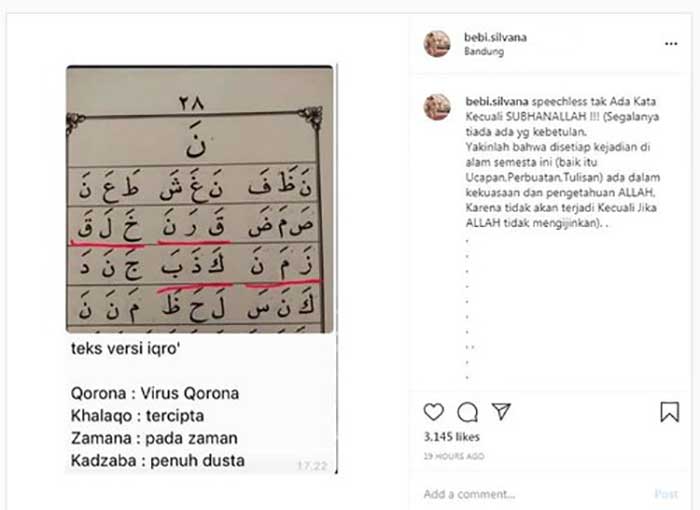 bebi.silvana
Bandung
٢٨
نَ
نَظَفَ نَغَشَ طَعَنَ
صَمَضَ قَرَنَ خَلَقَ
زَمَنَ كَذَبَ جَنَدَ
كَنَسَ لَحَظَ مَنَنَ
teks versi iqro'
Qorona : Virus Qorona
Khalaqo : tercipta
Zamana : pada zaman
Kadzaba : penuh dusta
17.22
bebi.silvana speechless tak Ada Kata
Kecuali SUBHANALLAH !!! (Segalanya
tiada ada yg kebetulan.
Yakinlah bahwa disetiap kejadian di
alam semesta ini (baik itu
Ucapan,Perbuatan,Tulisan) ada dalam
kekuasaan dan pengetahuan ALLAH.
Karena tidak akan terjadi Kecuali Jika
ALLAH tidak mengijinkan). .
.
.
.
.
.
.
.
. .
.
.
3,145 likes
19 HOURS AGO
Add a comment...
Post